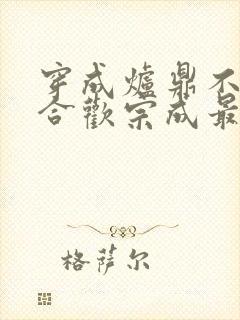 穿成爐鼎不
合歡宗成最
格萨尔